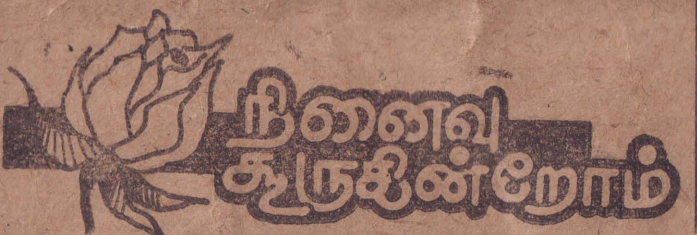 நினைவு
கூருகின்றோம்